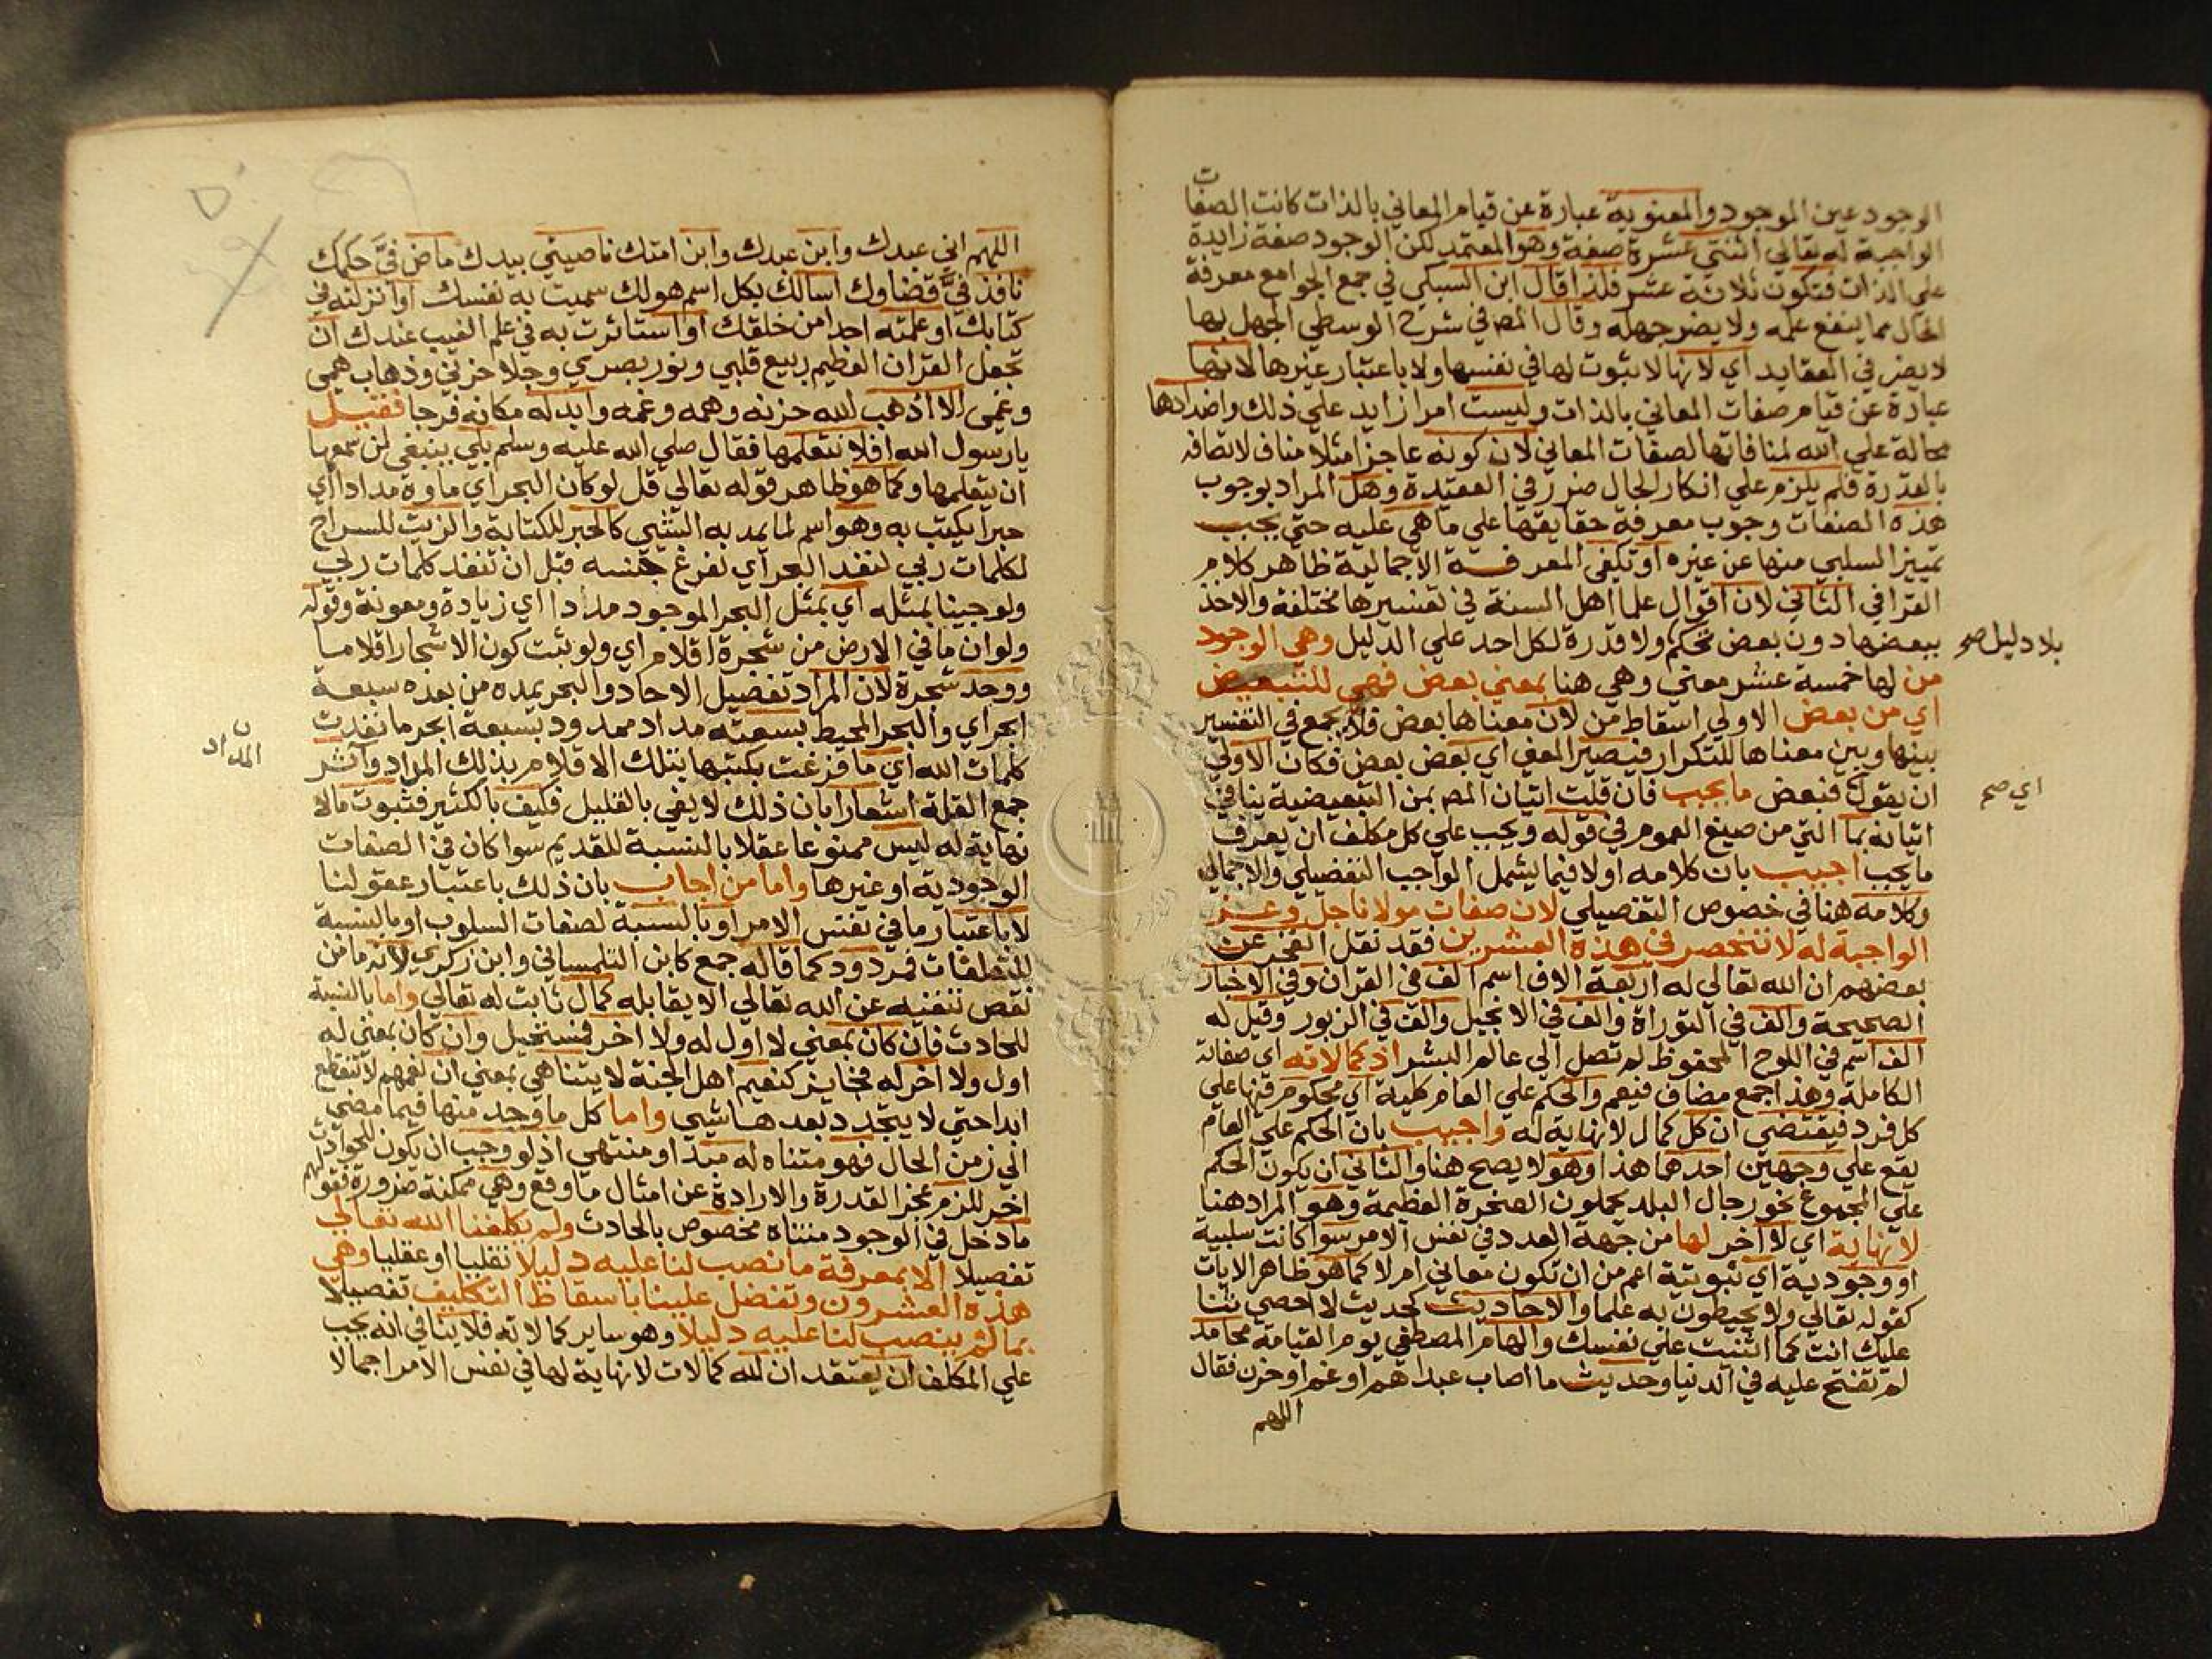 الوجود عين الموجود والمعنوية عبارة عن قيام المعاني بالذات كانت الصفات
الواجبة له تعالي اثنتي عشرة صفة وهو المعتمد لكن الوجود صفة زايدة
علي الذات فتكون ثلاثة عشر فلذا قال ابن السبكي في جمع الجوامع معرفة
الحال مما ينفع علمه ولا يضر جهله وقال المص في شرح الوسطي الجهل بها
لا يضر في العقايد اي لانها لا ثبوت لها في نفسها ولا باعتبار غيرها لانها
عبارة عن قيام صفات المعاني بالذات وليست امرا زايد علي ذلك واضدادها
محالة علي الله لمنافاتها لصفات المعاني لان كونه عاجزا مثلا مناف لاتصافه
بالقدرة فلم يلزم علي انكار الحال ضرر في العقيدة وهل المراد بوجوب
هذه الصفات وجوب معرفة حقايقها علي ما هي عليه حتي يجب
تمييز السلبي منها عن غيره او تكفي المعرفة الاجمالية ظاهر كلام
القرافي الثاني لان اقوال علما اهل السنة في تفسيرها مختلفة والاخذ
ببعضها دون بعض تحكم ولا قدرة لكل احد علي الدليل وهي الوجود
بلا دليل صح
من لها خمسة عشر معني وهي هنا بمعني بعض فهي للتبعيض
اي من بعض الاولي اسقاط من لان معناها بعض فلا يجمع في التفسير
بينها وبين معناها للتكرار فيصير المعني اي بعض بعض فكان الاولي
ان يقول فبعض ما يجب فان قلت اتيان المص بمن التبعيضية ينافي
اي صح
اتيانه بما التي من صيغ العموم في قوله ويجب علي كل مكلف ان يعرف
ما يجب اجيب بان كلامه اولا فيما يشمل الواجب التفصيلي والاجمالي
وكلامه هنا في خصوص التفصيلي لان صفات مولانا جل وعز
الواجبة له لا تنحصر في هذه العشرين فقد نقل الفخر عن
بعضهم ان الله تعالي له اربعة الاف اسم الف في القران وفي الاخبار
الصحيحة والف في التوراة والف في الانجيل والف في الزبور وقيل له
الف اسم في اللوح المحفوظ لم تصل الي عالم البشر اذ كمالاته اي صفاته
الكاملة وهذا جمع مضاف فيعم والحكم علي العام كلية اي محكوم فيها علي
كل فرد فيقتضي ان كل كمال لا نهاية له واجيب بان الحكم علي العام
يقع علي وجهين احدهما هذا وهو لا يصح هنا والثاني ان يكون الحكم
علي المجموع نحو رجال البلد يحملون الصخرة العظيمة وهو المراد هنا
لا نهاية اي لا اخر لها من جهة العدد في نفس الامر سوا كانت سلبية
او وجودية اي ثبوتية اعم من ان تكون معاني ام لا كما هو ظاهر الايات
كقوله تعالي ولا يحيطون به علما والاحاديث كحديث لا احصي ثنا
عليك انت كما اثنيت علي نفسك والهام المصطفي يوم القيامة محامد
لم تفتح عليه في الدنيا وحديث ما اصاب عبدا هم او غم او حزن فقال
اللهم
اللهم اني عبدك وابن عبدك وابن امتك ناصيتي بيدك ماض فيَّ حكمك
نافذ فيَّ قضاوك اسالك بكل اسم هو لك سميت به نفسك او انزلته في
كتابك او علمته احدا من خلقك او استاثرت به في علم الغيب عندك ان
تجعل القران العظيم ربيع قلبي ونور بصري وجلا حزني وذهاب همي
وغمي الا اذهب الله حزنه وهمه وغمه وابدله مكانه فرجا فقيل
يا رسول الله افلا نتعلمها فقال صلي الله عليه وسلم بلي ينبغي لمن سمعها
ان يتعلمها وكما هو ظاهر قوله تعالي قل لو كان البحر اي ماوه مدادا اي
حبرا يكتب به وهو اسم لما يمد به الشي كالحبر للكتابة والزيت للسراج
لكلمات ربي لنفد البحر اي لفرغ جنسه قبل ان تنفد كلمات ربي
ولو جينا بمثله اي بمثل البحر الموجود مدادا اي زيادة ومعونة وقوله
ولو ان ما في الارض من شجرة اقلام اي ولو ثبت كون الاشجار اقلاما
ووحد شجرة لان المراد تفضيل الاحاد والبحر يمده من بعده سبعة
ابحر اي والبحر المحيط بسعته مداد ممدود بسبعة ابحر ما نفدت
كلمات الله اي ما فرغت بكتبها بتلك الاقلام بذلك المراد واثر
المداد ن
جمع القلة اشعارا بان ذلك لا يفي بالقليل فكيف بالكثير فثبوت ما لا
نهاية له ليس ممنوعا عقلا بالنسبة للقديم سوا كان في الصفات
الوجودية او غيرها واما من اجاب بان ذلك باعتبار عقولنا
لا باعتبار ما في نفس الامر او بالنسبة لصفات السلوب او بالنسبة
للتعلقات فمردود كما قاله جمع كابن التلمساني وابن زكري لانه ما من
نقص ننفيه عن الله تعالي الا يقابله كمال ثابت له تعالي واما بالنسبة
للحادث فان كان بمعني لا اول له ولا اخر فمستحيل وان كان بمعني له
اول ولا اخر له فجايز كنعيم اهل الجنة لا يتناهي بمعني ان نعمهم لا تنقطع
ابدا حتي لا يتجدد بعدها شي واما كل ما وجد منها فيما مضي
الي زمن الحال فهو متناه له مبتدا ومنتهي اذ لو وجب ان يكون للحوادث
اخر للزم عجز القدرة والارادة عن امثال ما وقع وهي ممكنة ضرورة فقولهم
ما دخل في الوجود متناه مخصوص بالحادث ولم يكلفنا الله تعالي
تفصيلا الا بمعرفة ما نصب لنا عليه دليلا نقليا او عقليا وهي
هذه العشرون وتفضل علينا باسقاط التكليف تفصيلا
بما لم ينصب لنا عليه دليلا وهو ساير كمالاته فلا ينافي انه يجب
علي المكلف ان يعتقد ان لله كمالات لا نهاية لها في نفس الامر اجمالا